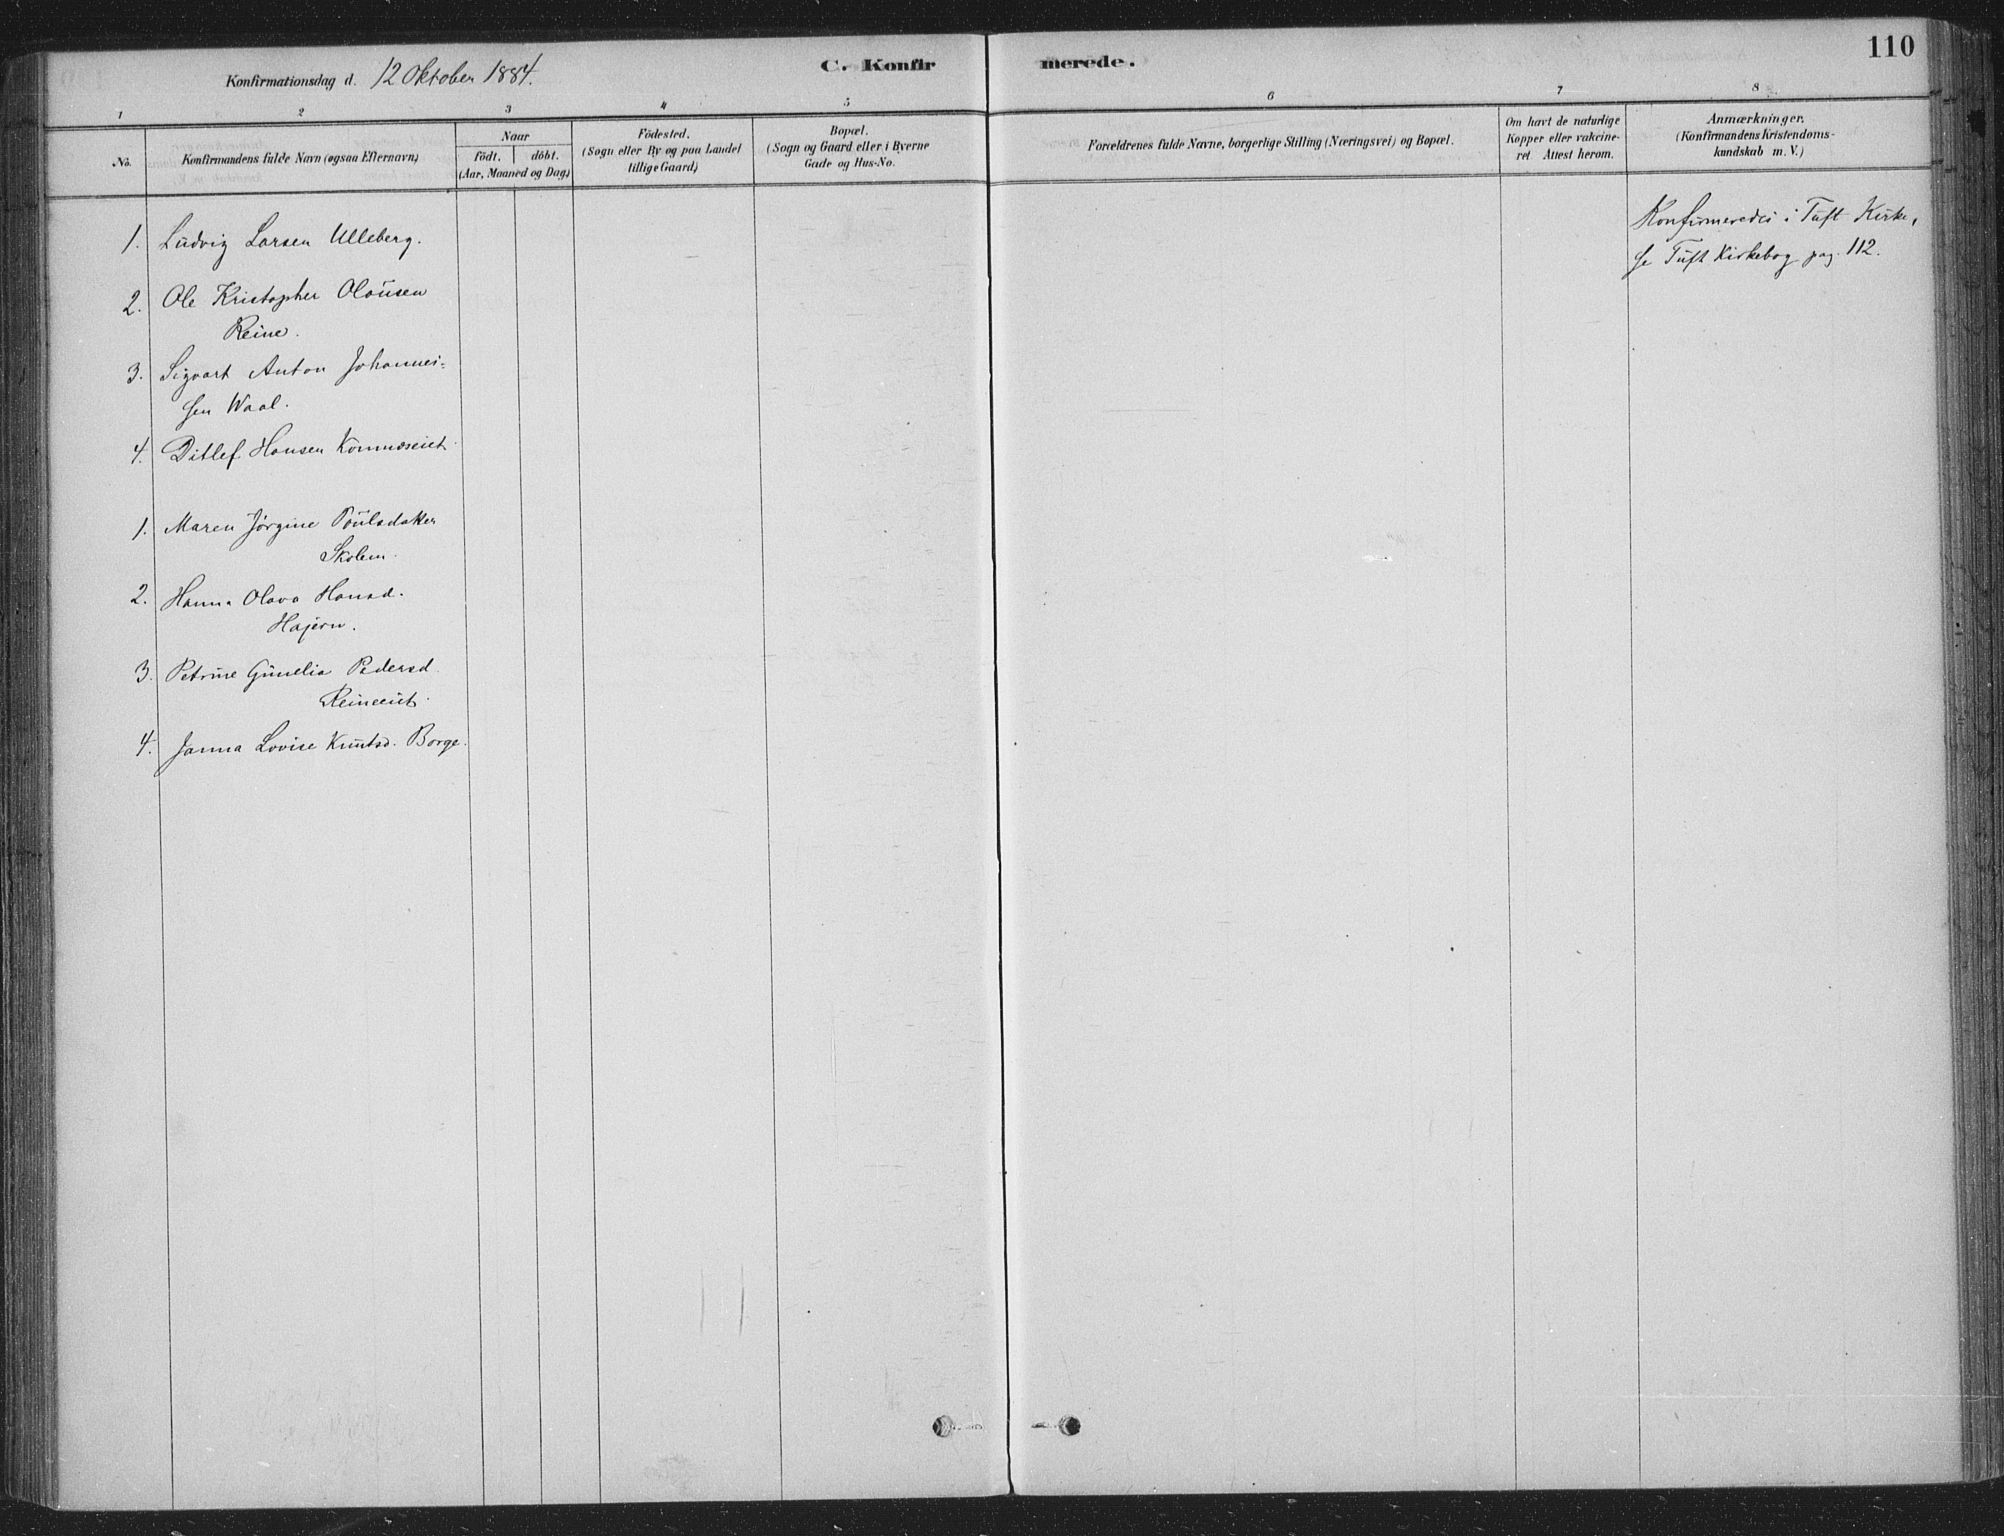 110
Konfirmationsdag d. 12 Oktober 1884.
C. Konfirmerede.
1 2 3 4 5 6 7 8
No.
Konfirmandens fulde Navn (ogsaa Efternavn)
Naar
født. døbt.
(Aar, Maaned og Dag)
Fødested.
(Sogn eller By og paa Landet
tillige Gaard)
Bopæl.
(Sogn og Gaard eller i Byerne
Gade og Hus-No.
Forældrenes fulde Navne, borgerlige Stilling (Næringsvei) og Bopæl.
Om havt de naturlige
Kopper eller vakcine-
ret Attest herom.
Anmærkninger.
(Konfirmandens Kristendoms-
kundskab m. V.)
1. Ludvig Larsen Ulleberg.
2. Ole Kristopher Olausen
Reine.
3. Sigvart Anton Johannes-
sen Waal.
4. Ditlef Hansen
1. Maren Jørgine
Skolem.
2. Hanna Olava Hansd.
Hajern.
3. Petrine Gunelia Pedersd.
Reineeiet.
4. Janna Lovise Knutsd. Borge.
Konfirmeredes i Tuft Kirke,
se Tuft Kirkebog pag. 112.